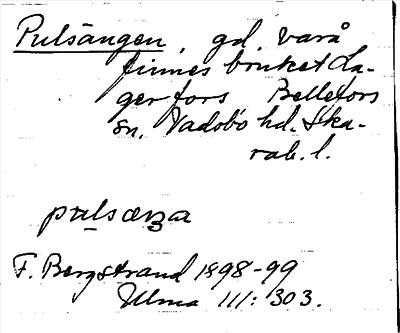 Pulsängen, gd. varå
finnes bruket La-
gerfors Bellefors
sn. Vadsbo hd. Ska-
rab. l.
pulsæŋa
F. Bergstrand 1898-99
Ulma 111: 303.